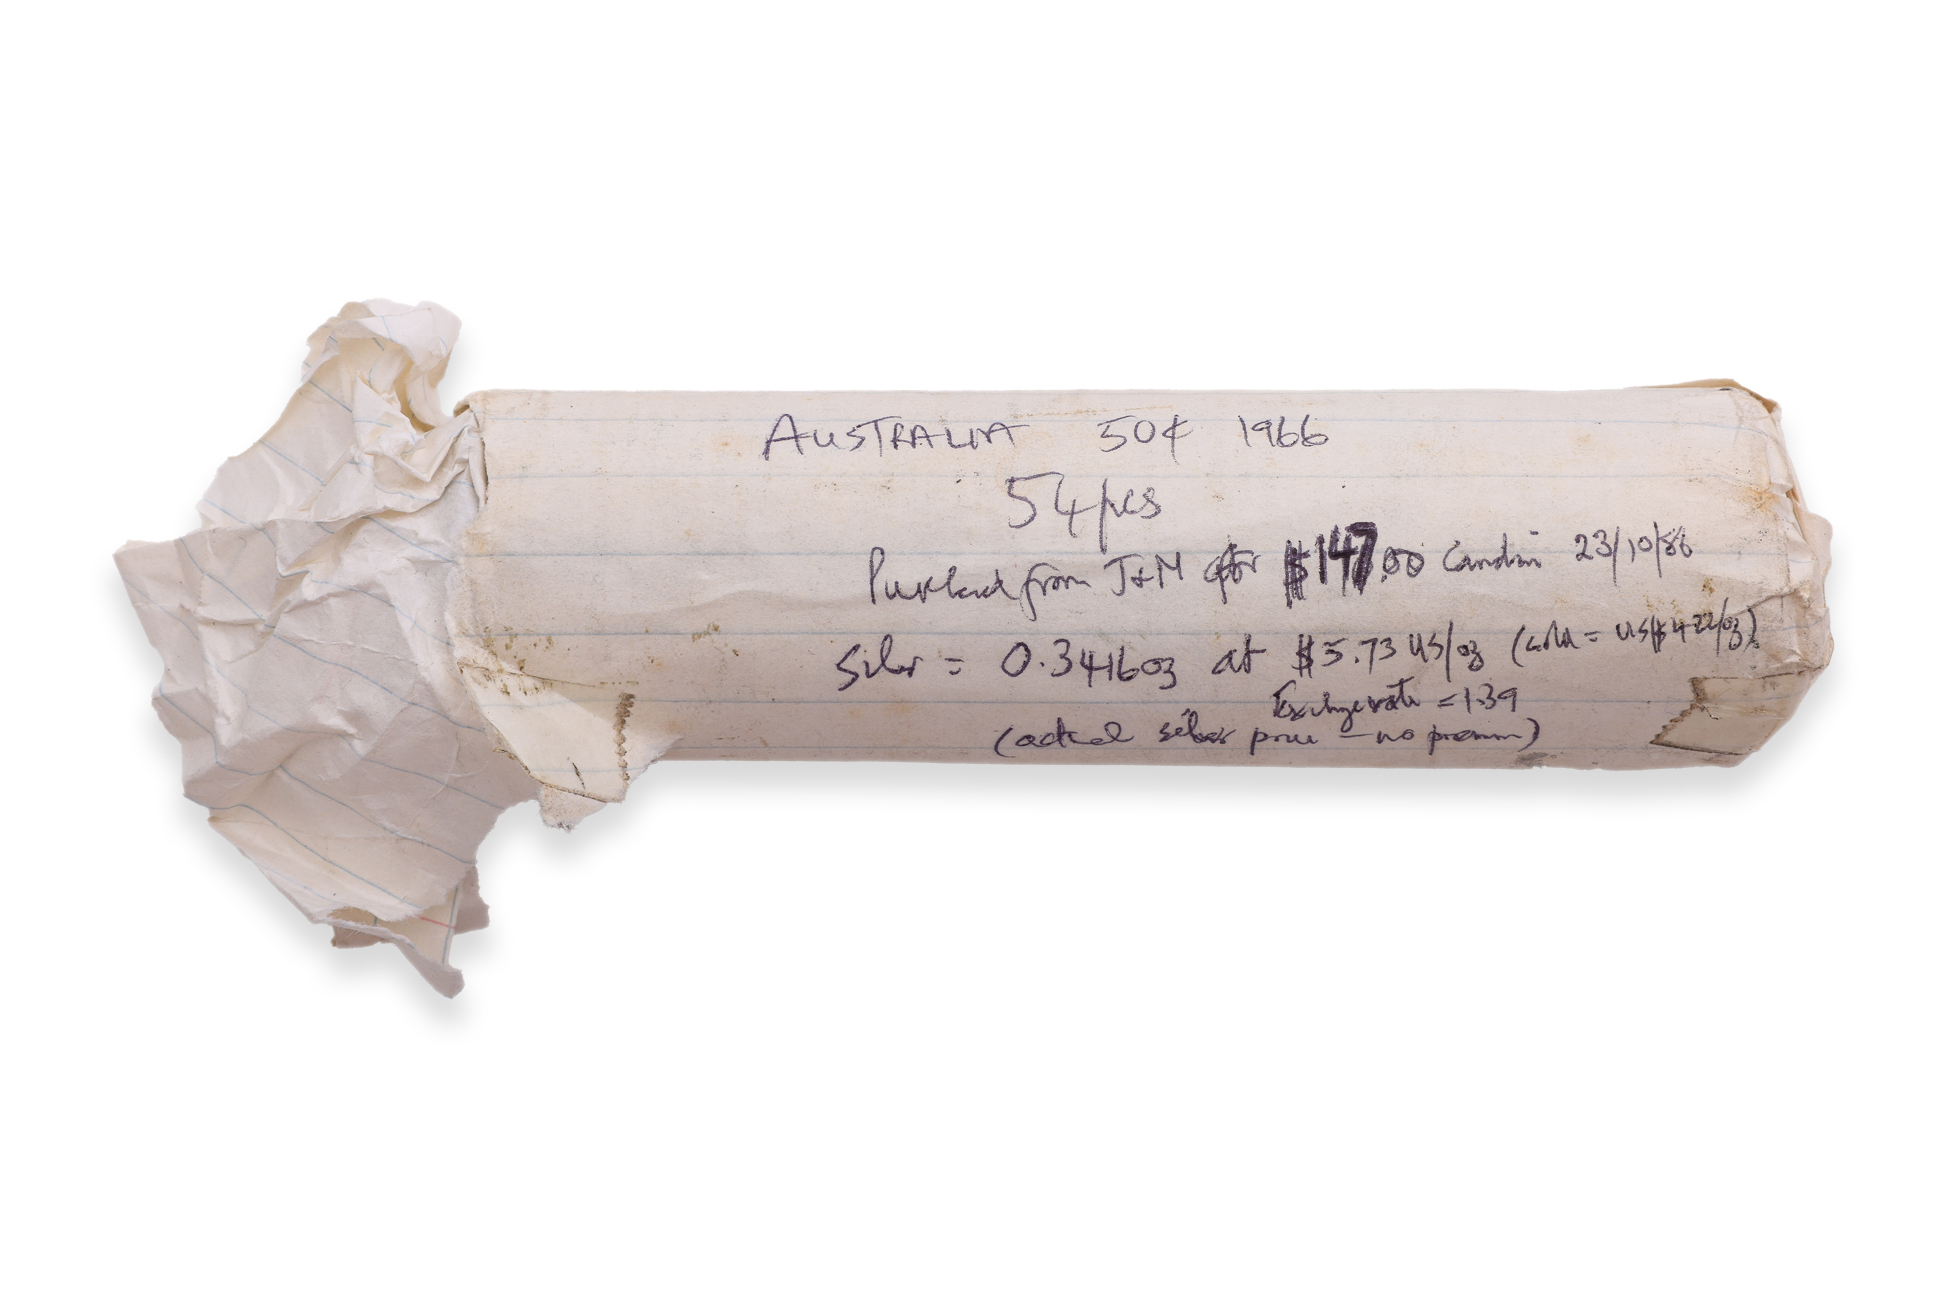 AUSTRALIA 50¢ 1966
54 pcs
Purchased from J+M for $147.00 Canadian 23/10/86
Silver = 0.3416oz at $5.73 US/oz (gold = US$422/oz)
Exchange rate = 1.39
(actual silver price - no premium)